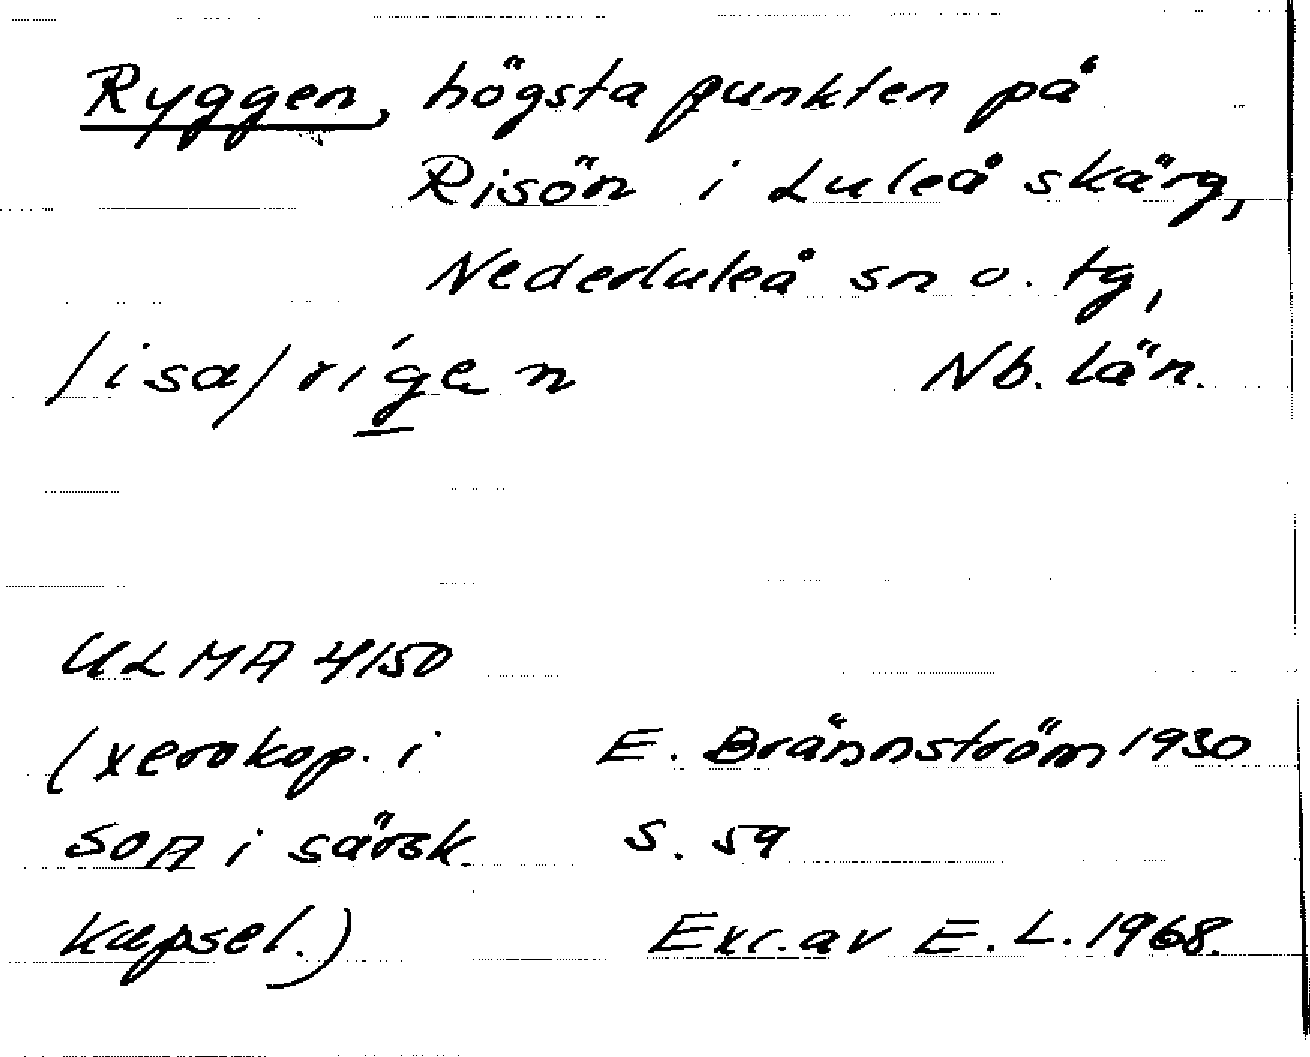 Ryggen, högsta punkten på
Risön i Luleå skärg,
Nederluleå sn o. tg,
/isa/rígen Nb. län.
ULMA 4150
(xerokop. i E. Brännström 1930
SOA i särsk. S. 59
kapsel.) Exc. av E. L. 1968.